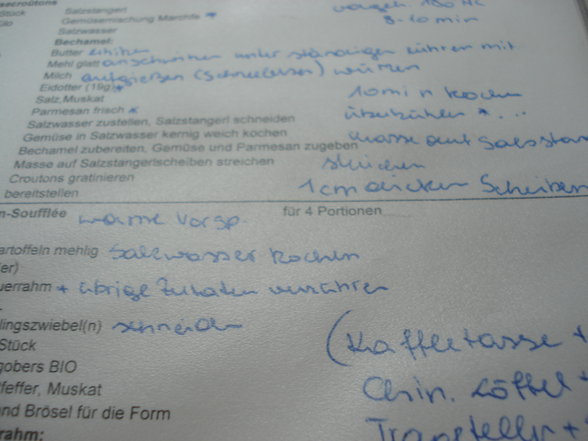 secroûtons
Salzstangerl vorgeh. 180 HL
Stück Gemüsemischung Marchfe 8-10 min
Salzwasser
Bechamel:
Butter erhitzen
Mehl glatt anschwitzen unter ständigen rühren mit
Milch aufgießen (Schneebesen) würzen
Eidotter (19g)* 10 min kochen
Salz, Muskat
Parmesan frisch * überkühlen *...
Salzwasser zustellen, Salzstangerl schneiden
Gemüse in Salzwasser kernig weich kochen Masse auf Salzstan
Bechamel zubereiten, Gemüse und Parmesan zugeben
Masse auf Salzstangerlscheiben streichen streichen
Croutons gratinieren 1cm dicken Scheiben
bereitstellen
n-Soufflée warme Vorsp. für 4 Portionen
artoffeln mehlig Salzwasser kochen
er)
uerrahm + übrige Zutaten verrühren
lingszwiebel(n) schneiden
Stück (Kaffeetasse +
gobers BIO
feffer, Muskat Chin. Löffel +
nd Brösel für die Form
rahm: Tragteller +